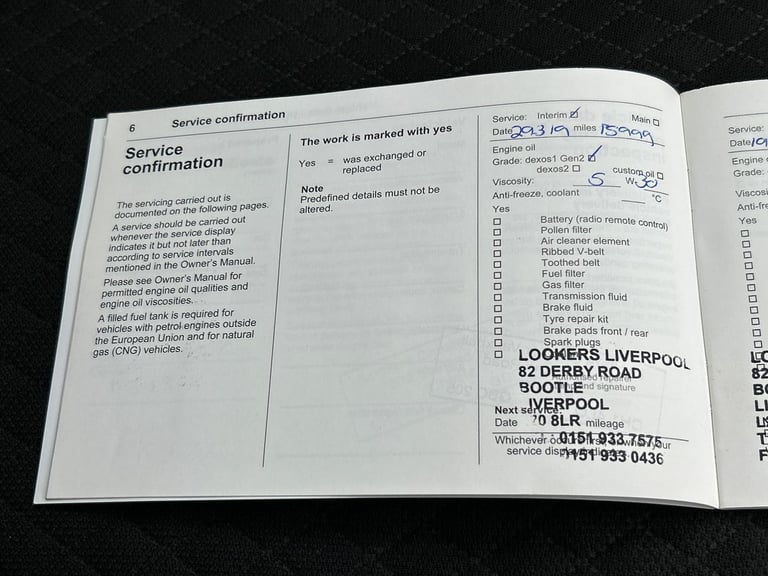 6 Service confirmation
Service
confirmation
The servicing carried out is
documented on the following pages.
A service should be carried out
whenever the service display
indicates it but not later than
according to service intervals
mentioned in the Owner's Manual.
Please see Owner's Manual for
permitted engine oil qualities and
engine oil viscosities.
A filled fuel tank is required for
vehicles with petrol engines outside
the European Union and for natural
gas (CNG) vehicles.
The work is marked with yes
Yes = was exchanged or
replaced
Note
Predefined details must not be
altered.
Service: Interim ☑ Main ☐
Date 29.3.19 miles 15999
Engine oil
Grade: dexos1 Gen2 ☑
dexos2 ☐ custom oil ☐
Viscosity: 5 W 30
Anti-freeze, coolant °C
Yes
☐ Battery (radio remote control)
☐ Pollen filter
☐ Air cleaner element
☐ Ribbed V-belt
☐ Toothed belt
☐ Fuel filter
☐ Gas filter
☐ Transmission fluid
☐ Brake fluid
☐ Tyre repair kit
☐ Brake pads front / rear
☐ Spark plugs
☐
LOOKERS LIVERPOOL
82 DERBY ROAD
Authorised repairer
BOOTLE
stamp and signature
IVERPOOL
Next service:
Date 20 8LR mileage
0151 933 7575
Whichever occurs first, or when your
service display indicates
0436
Service:
Date
Engine
Grade:
Viscosi
Anti-fre
Yes
LO
82
BO
LI